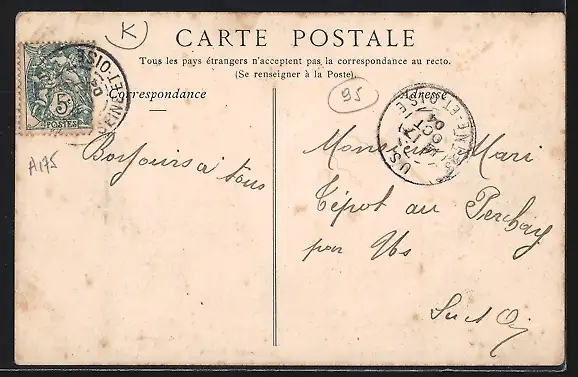 K
CARTE POSTALE
Tous les pays étrangers n'acceptent pas la correspondance au recto.
(Se renseigner à la Poste).
Correspondance
Adresse
95
5
POSTES
ET-OISE
US
ET-OISE
17
OCT
04
A175
Bonjours a tous
Monsieur Mari
Dépot au Perchay
par Us